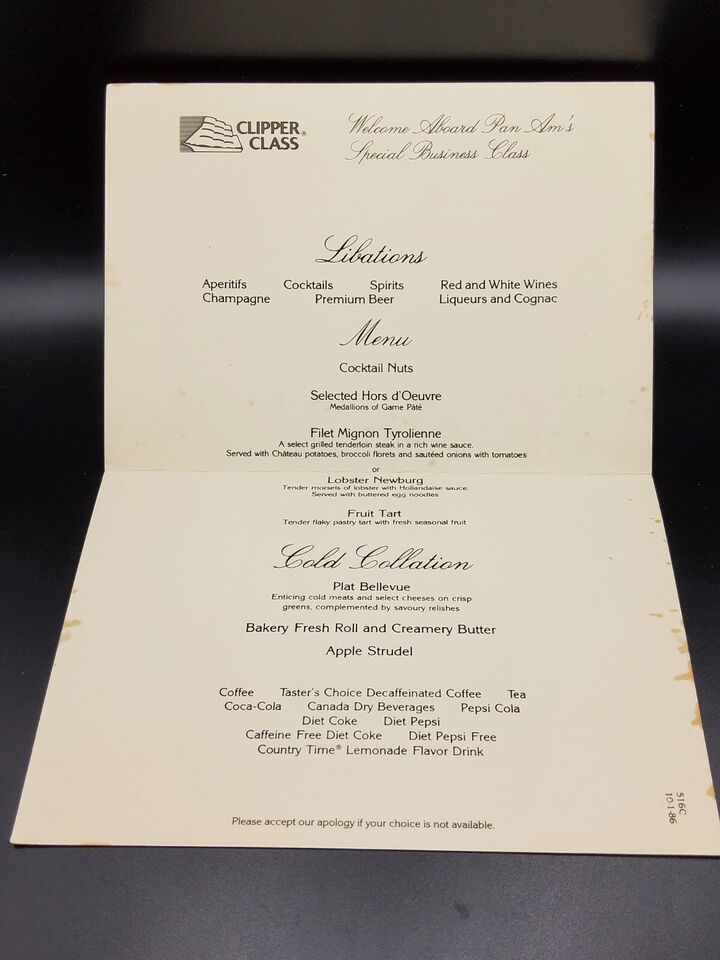 CLIPPER®
CLASS
Welcome Aboard Pan Am's
Special Business Class
Libations
Aperitifs Cocktails Spirits Red and White Wines
Champagne Premium Beer Liqueurs and Cognac
Menu
Cocktail Nuts
Selected Hors d'Oeuvre
Medallions of Game Pâté
Filet Mignon Tyrolienne
A select grilled tenderloin steak in a rich wine sauce.
Served with Château potatoes, broccoli florets and sautéed onions with tomatoes
or
Lobster Newburg
Tender morsels of lobster with Hollandaise sauce.
Served with buttered egg noodles
Fruit Tart
Tender flaky pastry tart with fresh seasonal fruit
Cold Collation
Plat Bellevue
Enticing cold meats and select cheeses on crisp
greens, complemented by savoury relishes
Bakery Fresh Roll and Creamery Butter
Apple Strudel
Coffee Taster's Choice Decaffeinated Coffee Tea
Coca-Cola Canada Dry Beverages Pepsi Cola
Diet Coke Diet Pepsi
Caffeine Free Diet Coke Diet Pepsi Free
Country Time® Lemonade Flavor Drink
Please accept our apology if your choice is not available.
516C
10-1-86